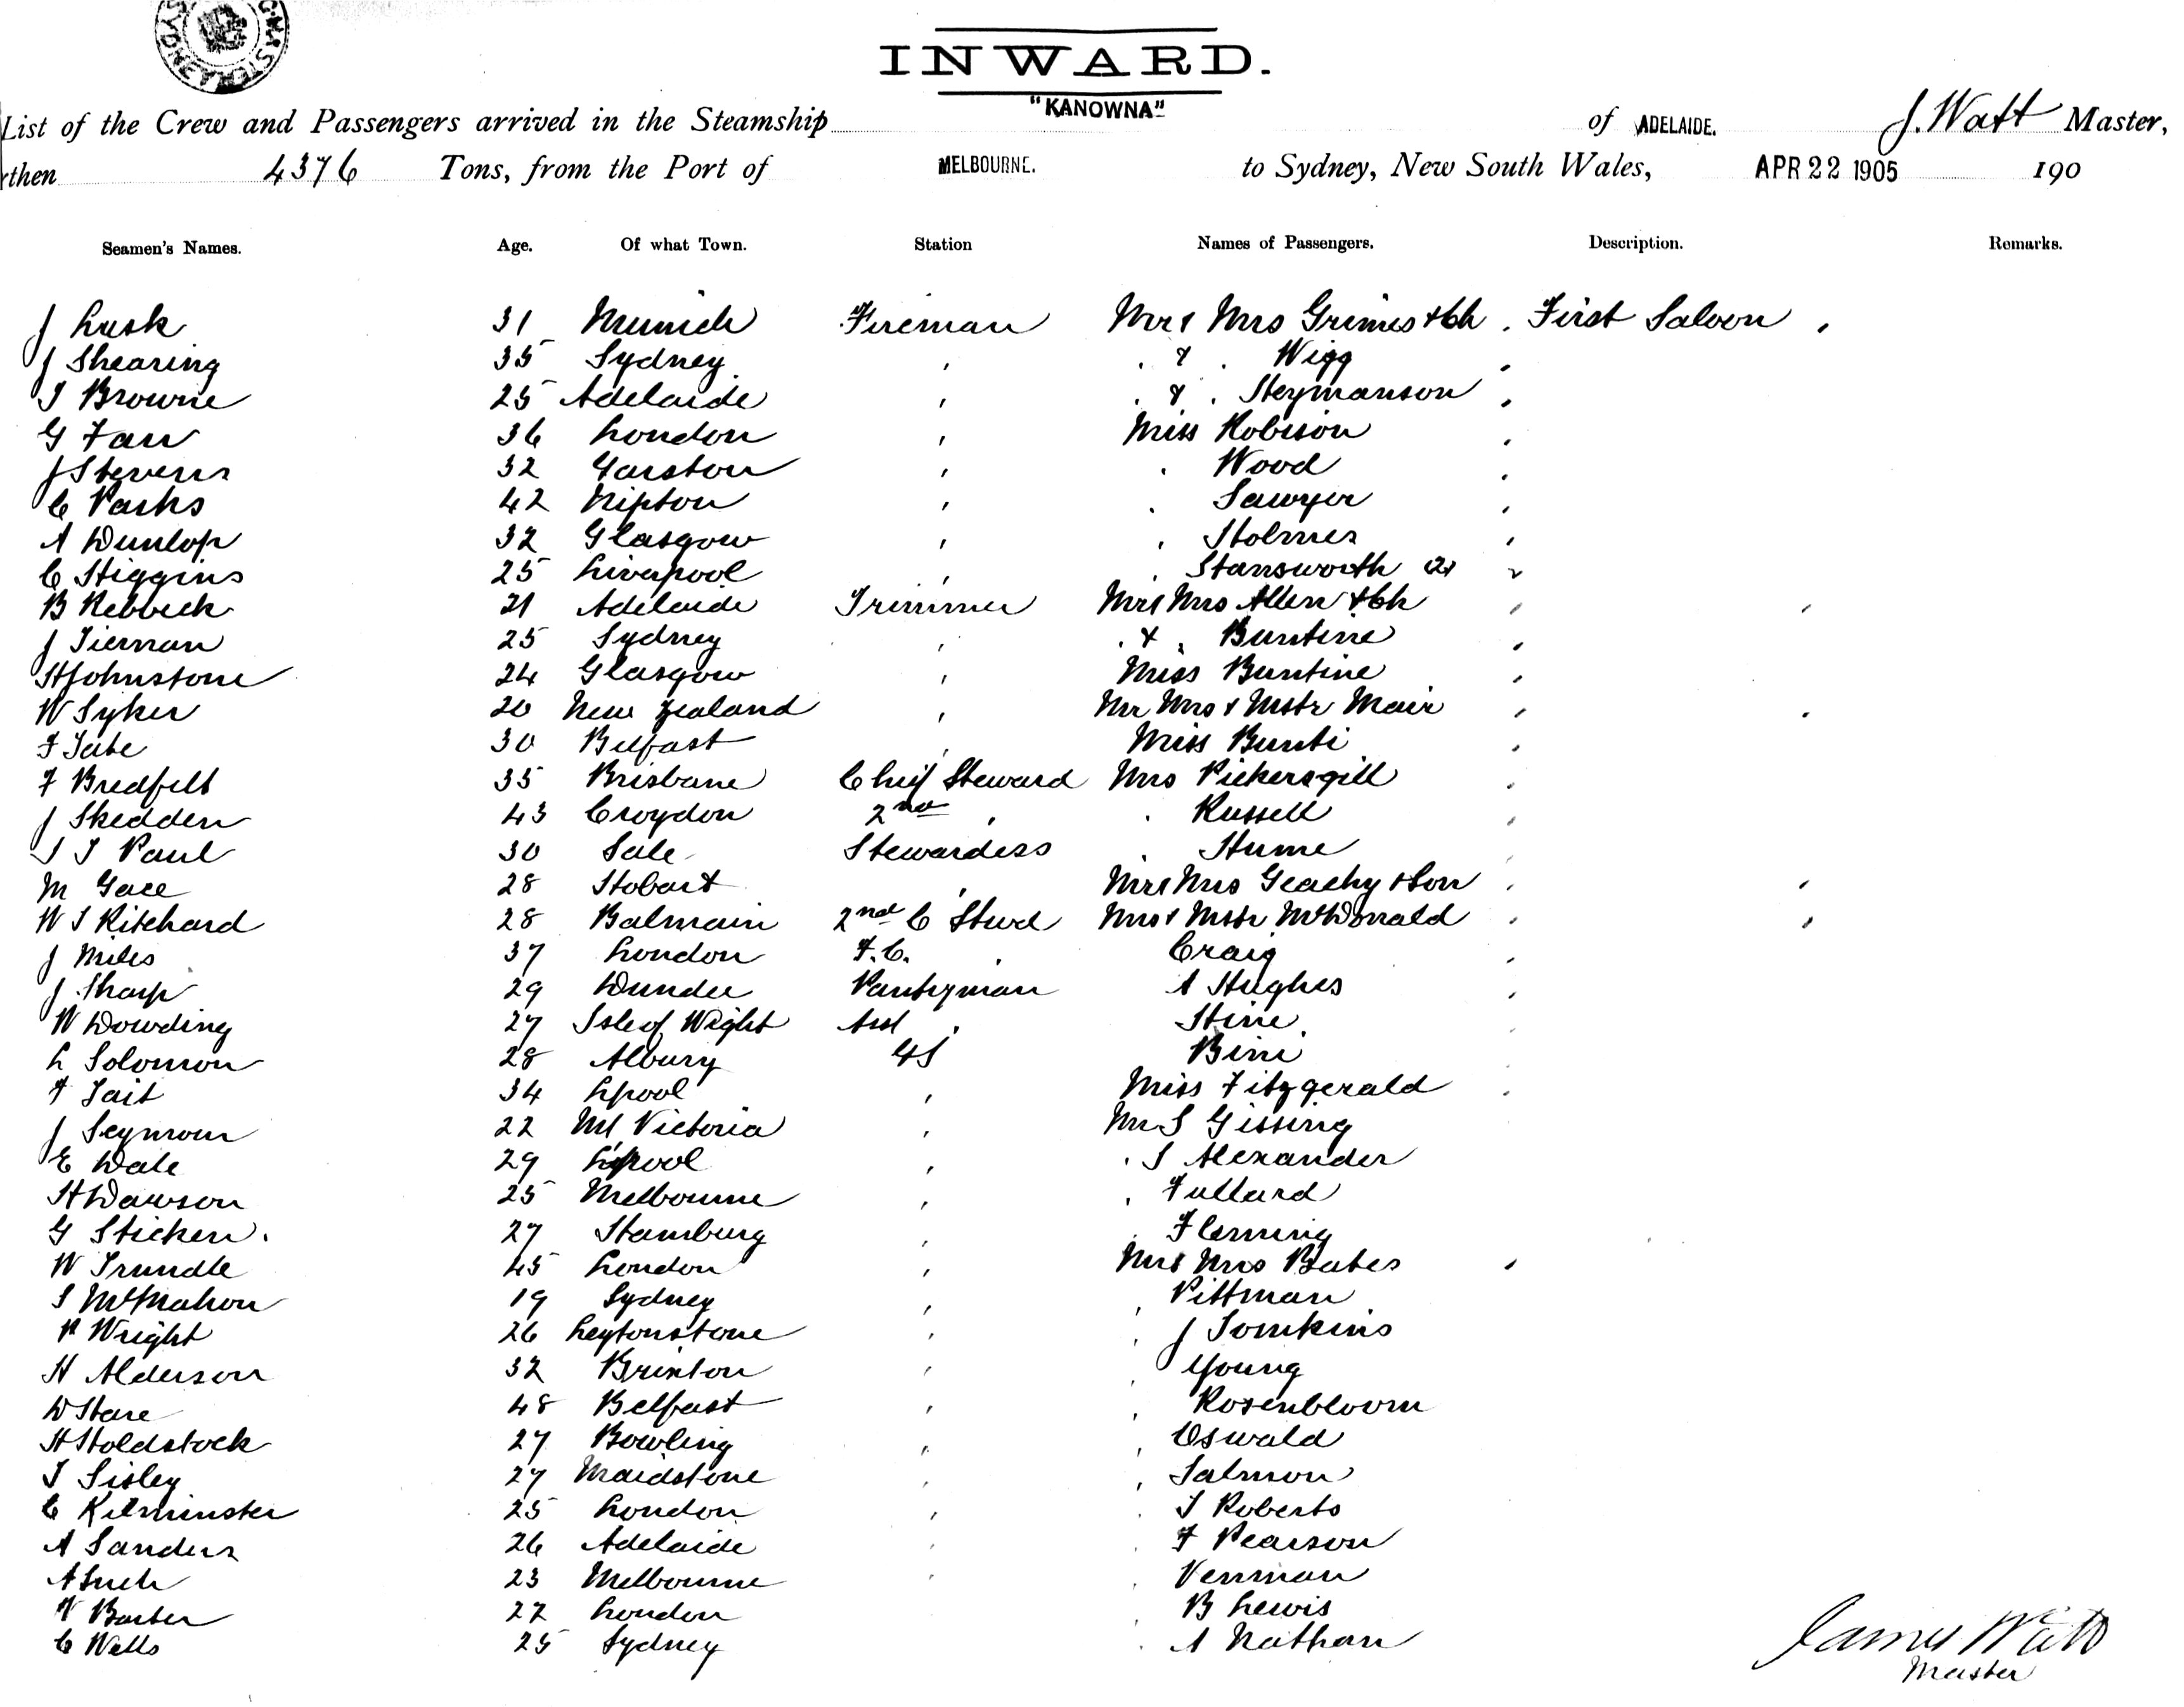 INWARD.
List of the Crew and Passengers arrived in the Steamship "KANOWNA" of ADELAIDE. J. Watt Master,
rthen 4376 Tons, from the Port of MELBOURNE. to Sydney, New South Wales, APR 22 1905 190
Seamen's Names. Age. Of what Town. Station Names of Passengers. Description. Remarks.
J Lusk 31 Munich Fireman Mr & Mrs Grimes & Ch , First Saloon ,
J Shearing 35 Sydney , . & . Wigg ,
T Browne 25 Adelaide , . & . Heymanson ,
G Farr 36 London , Miss Robison ,
J Stevens 32 Garston , . Wood ,
C Parks 42 Nipton , . Sawyer ,
A Dunlop 32 Glasgow , , Holmes ,
C Higgins 25 Liverpool , . Stansworth (2) ,
B Rebbeck 21 Adelaide Trimmer Mr & Mrs Allen & Ch , ,
J Tiernan 25 Sydney , . & . Buntine ,
H Johnstone 24 Glasgow , Miss Buntine ,
W Syker 20 New Zealand , Mr Mrs & Mstr Mair , .
F Tate 30 Belfast , Miss Bunti ,
F Bredfelt 35 Brisbane Chief Steward Mrs Pickersgill ,
J Skedden 43 Croydon 2nd , . Russell ,
S J Paul 30 Sale Stewardess . Hume ,
M Gace 28 Hobart , Mr & Mrs Geachy & Son , ,
W S Ritchard 28 Balmain 2nd C Stwd Mrs & Mstr McDonald , ,
J Miles 37 London F.C. . Craig ,
J Sharp 29 Dundee Pantryman A Hughes ,
W Dowding 27 Isle of Wight Asst , Hine .
L Solomon 28 Albury GS Bini
F Tait 34 Lpool , Miss Fitzgerald .
J Seymour 22 Mt Victoria , Mr S Gissing
E Dale 29 L'pool , . S Alexander
H Dawson 25 Melbourne , , Fullard
G Sticken. 27 Hamburg , . Fleming
W Trundle 45 London , Mr & Mrs Bates ,
S McMahon 19 Sydney , , Pittman
P Wright 26 Leytonstone , . J Tomkins
H Alderson 32 Brixton , , Young
D Hare 48 Belfast , , Rosenbloom
H Holdstock 27 Bowling , , Oswald
T Sisley 27 Maidstone , , Salmon
C Kilminster 25 London , . T Roberts
A Sanders 26 Adelaide , . F Pearson
A Such 23 Melbourne , . Venman
W Barber 22 London . B Lewis
C Wells 25 Sydney . A Nathan
James Watt
Master